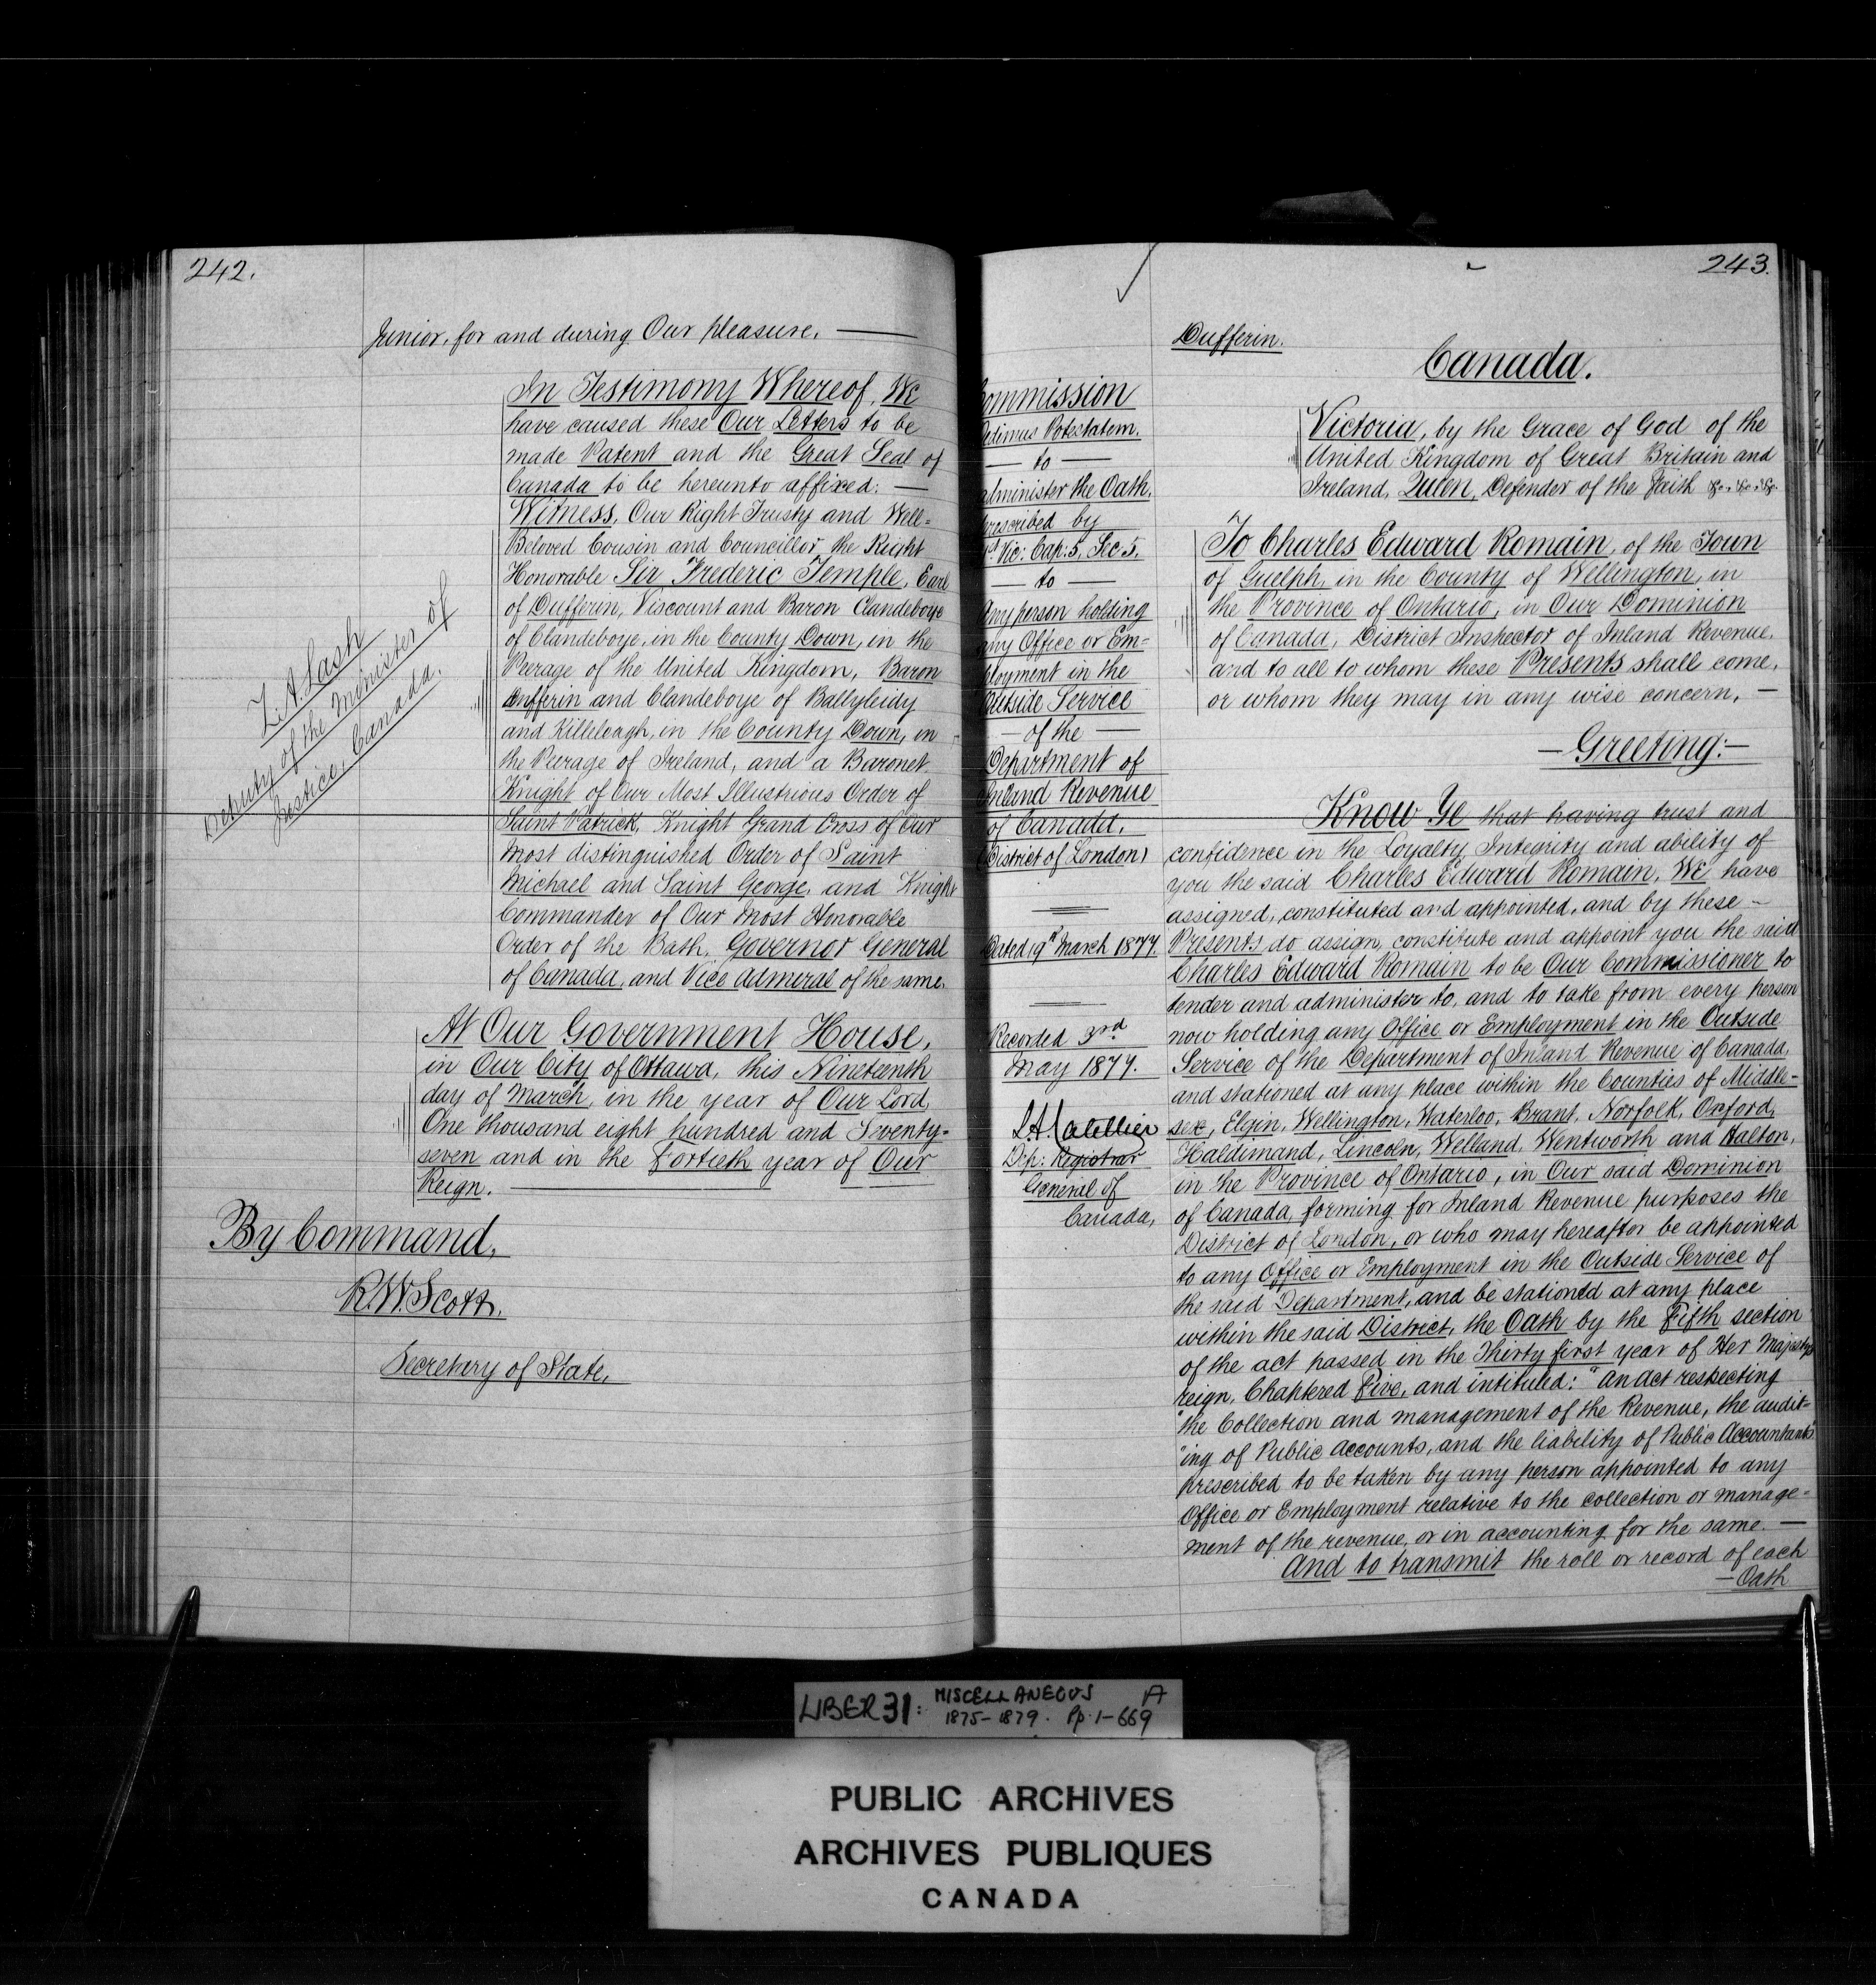 242.
Junior, for and during Our pleasure. —
In Testimony Whereof, We
have caused these Our Letters to be
made Patent and the Great Seal of
Canada to be hereunto affixed: —
Witness, Our Right Trusty and Well=
Beloved Cousin and Councillor the Right
Honorable Sir Frederic Temple, Earl
of Dufferin, Viscount and Baron Clandeboye
of Clandeboye, in the County Down, in the
Peerage of the United Kingdom, Baron
Dufferin and Clandeboye of Ballyleidy
and Killeleagh, in the County Down, in
the Peerage of Ireland, and a Baronet.
Knight of Our Most Illustrious Order of
Saint Patrick, Knight Grand Cross of Our
most distinguished Order of Saint
Michael and Saint George, and Knight
Commander of Our most Honorable
Order of the Bath, Governor General
of Canada, and Vice Admiral of the same.
Z. A. Lash
Deputy of the Minister of
Justice, Canada.
At Our Government House,
in Our City of Ottawa, this Nineteenth
day of March, in the year of Our Lord,
One thousand eight hundred and Seventy-
seven and in the Fortieth year of Our
Reign. —
By Command,
R. W. Scott.
Secretary of State,
243.
ommission
edimus Potestatem.
— to —
administer the Oath.
prescribed by
Vic: Cap: 5, Sec 5.
— to —
Any person holding
any Office or Em=
ployment in the
Outside Service
— of the —
Department of
Inland Revenue
of Canada.
(District of London)
Dated 19th March 1877.
Recorded 3rd
May 1877.
Dep: Registrar
General of
Canada,
Dufferin.
Canada.
Victoria, by the Grace of God of the
United Kingdom of Great Britain and
Ireland, Queen, Defender of the Faith &c. &c. &c.
To Charles Edward Romain, of the Town
of Guelph, in the County of Wellington, in
the Province of Ontario, in Our Dominion
of Canada, District Inspector of Inland Revenue.
and to all to whom these Presents shall come,
or whom they may in any wise concern, —
— Greeting: —
Know Ye that having trust and
confidence in the Loyalty Integrity and ability of
you the said Charles Edward Romain, We have
assigned, constituted and appointed, and by these –
Presents do assign, constitute and appoint you the said
Charles Edward Romain to be Our Commissioner to
tender and administer to, and to take from every person
now holding any Office or Employment in the Outside
Service of the Department of Inland Revenue of Canada,
and stationed at any place within the Counties of Middle-
sex, Elgin, Wellington, Waterloo, Brant, Norfolk, Oxford,
Haldimand, Lincoln, Welland, Wentworth and Halton,
in the Province of Ontario, in Our said Dominion
of Canada, forming for Inland Revenue purposes the
District of London, or who may hereafter be appointed
to any Office or Employment in the Outside Service of
the said Department, and be stationed at any place
within the said District, the Oath by the Fifth section
of the act passed in the Thirty first year of Her Majestys
reign, Chaptered Five, and intituled: "An act respecting
"the Collection and management of the Revenue, the audit=
"ing of Public Accounts, and the liability of Public Accountants"
prescribed to be taken by any person appointed to any
Office or Employment relative to the collection or manage=
ment of the revenue, or in accounting for the same. —
And to transmit the roll or record of each
— Oath
LIBER 31: MISCELLANEOUS A
1875-1879. Pp. 1-669
PUBLIC ARCHIVES
ARCHIVES PUBLIQUES
CANADA